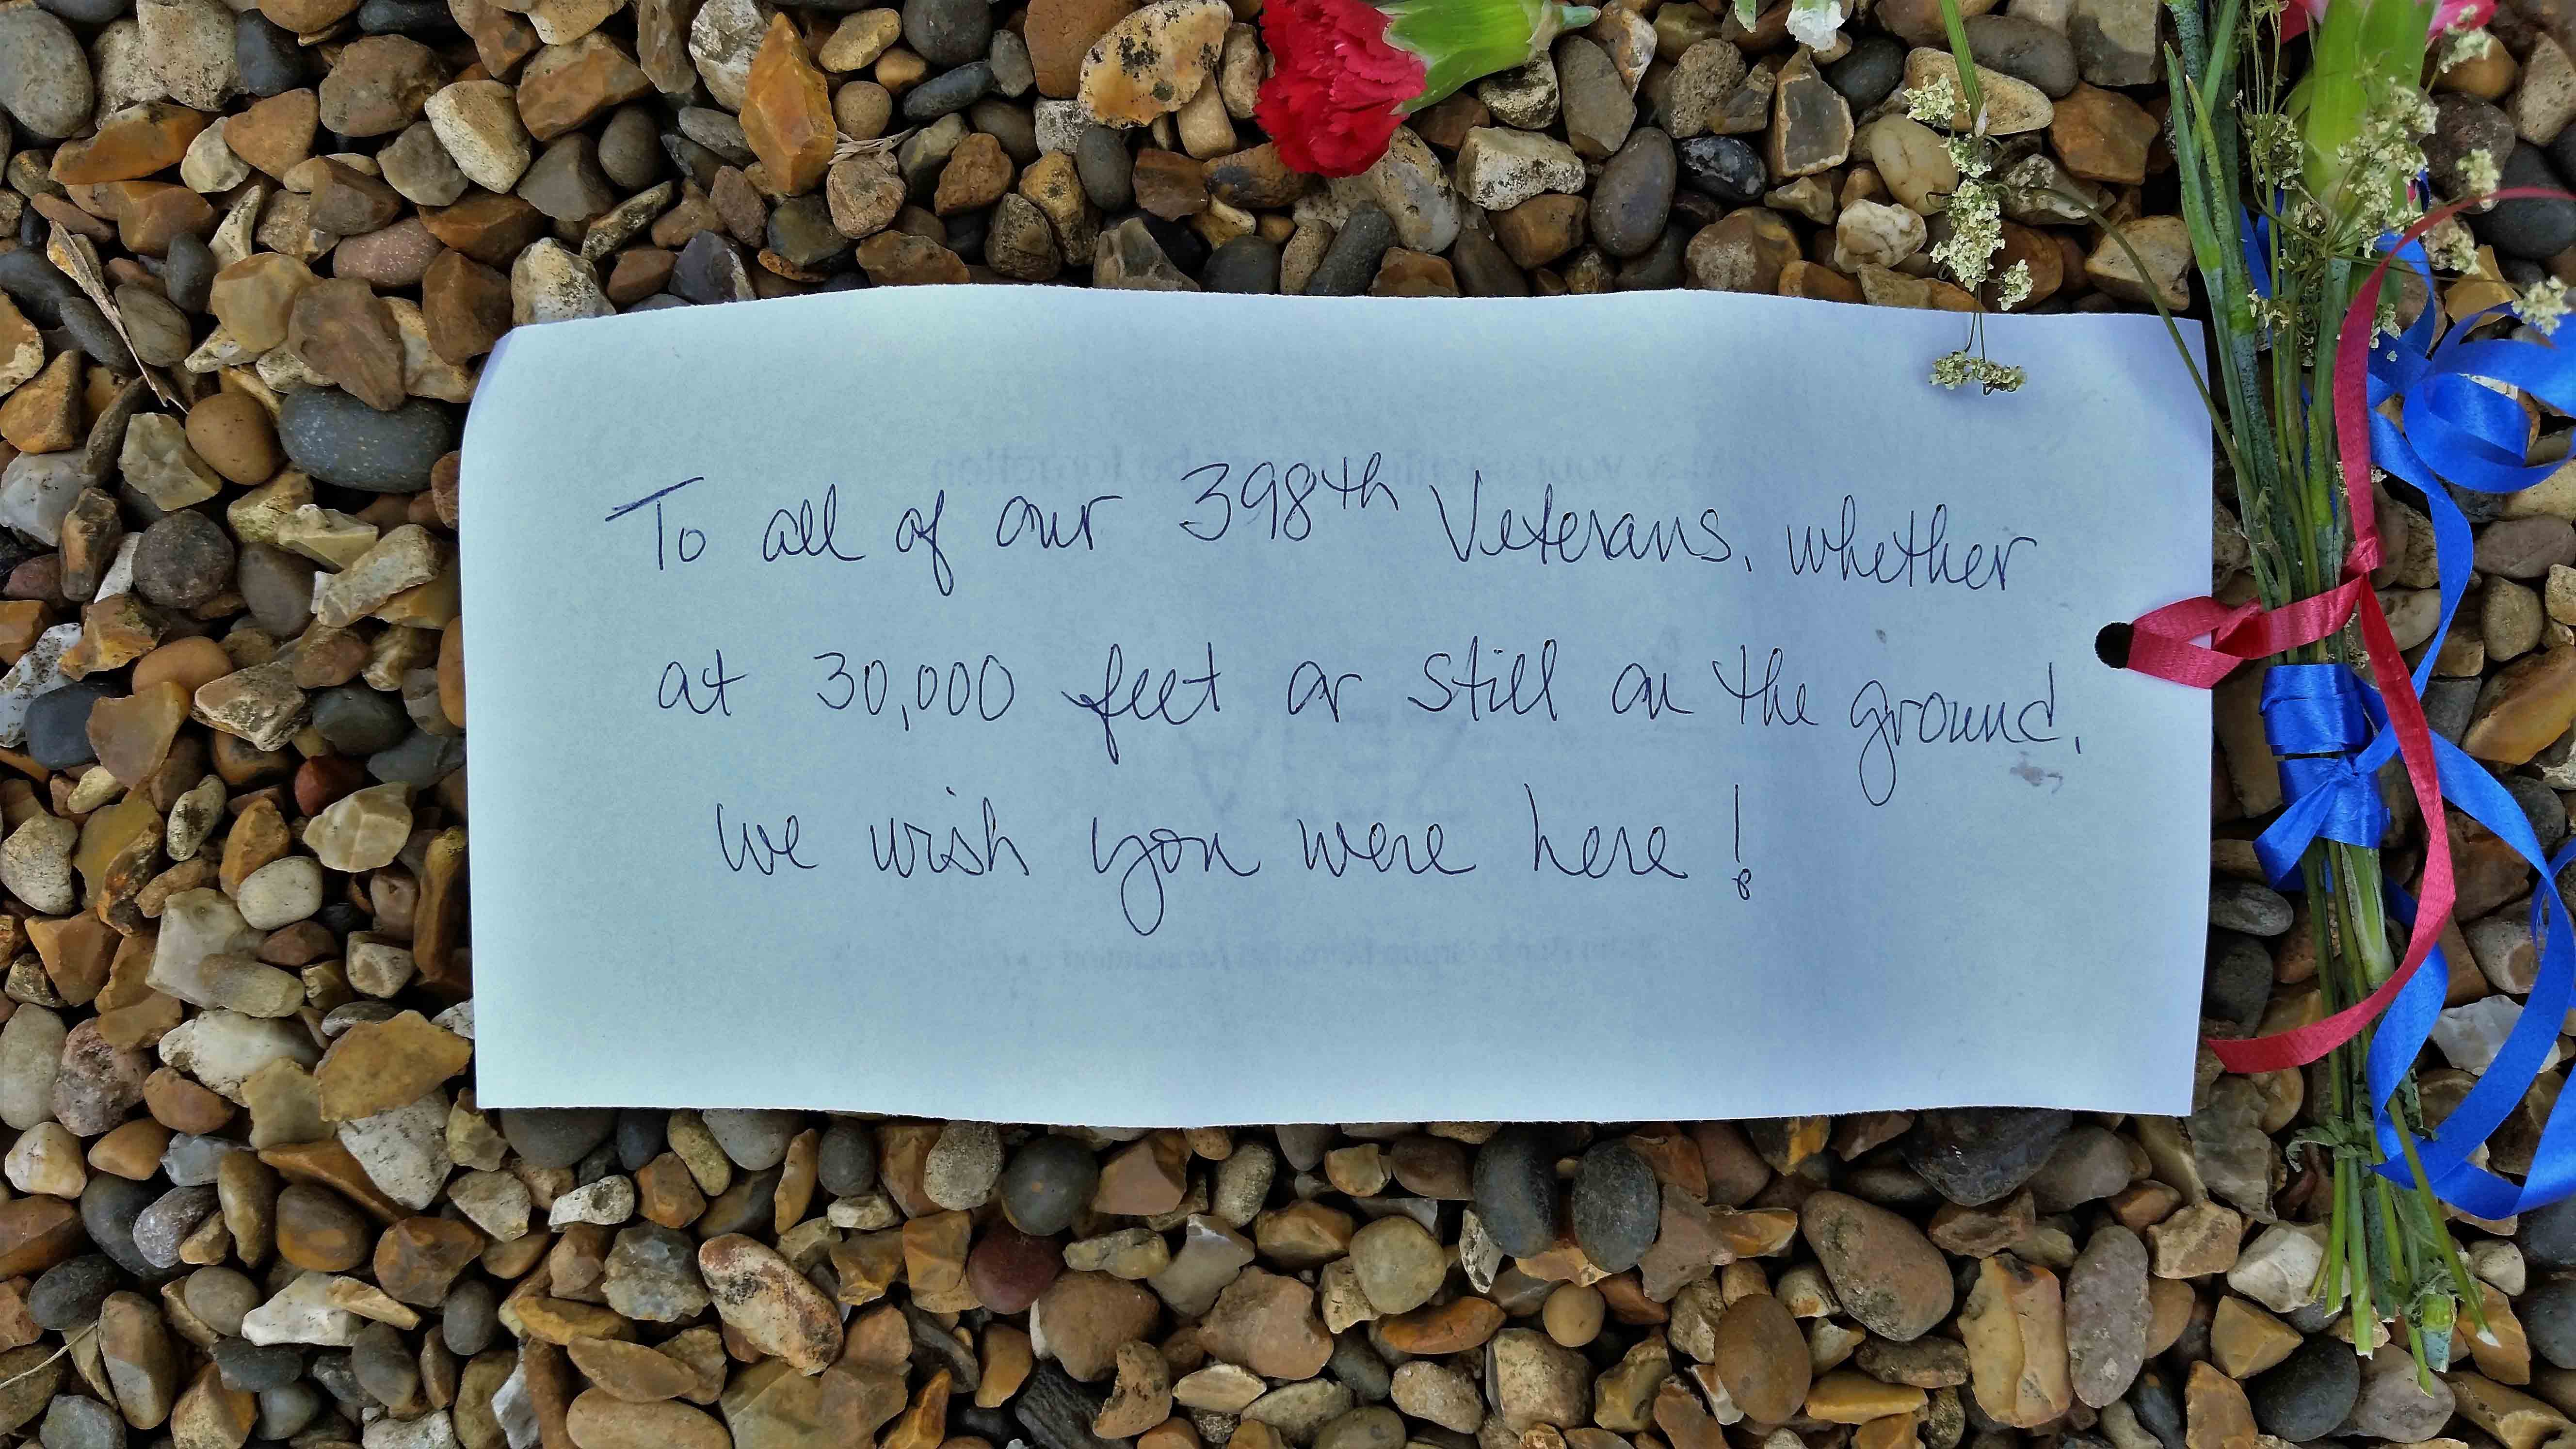 To all of our 398th Veterans, whether
at 30,000 feet or still on the ground,
we wish you were here!